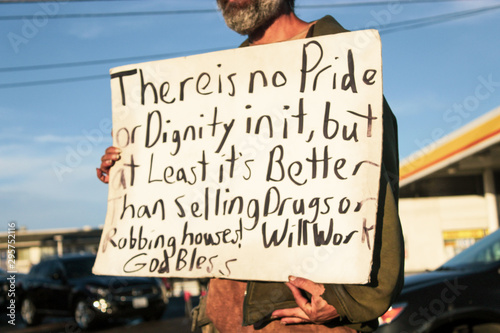 There is no Pride
or Dignity in it, but
at Least it's Better
Than selling Drugs or
Robbing houses! Will Work
God Bless